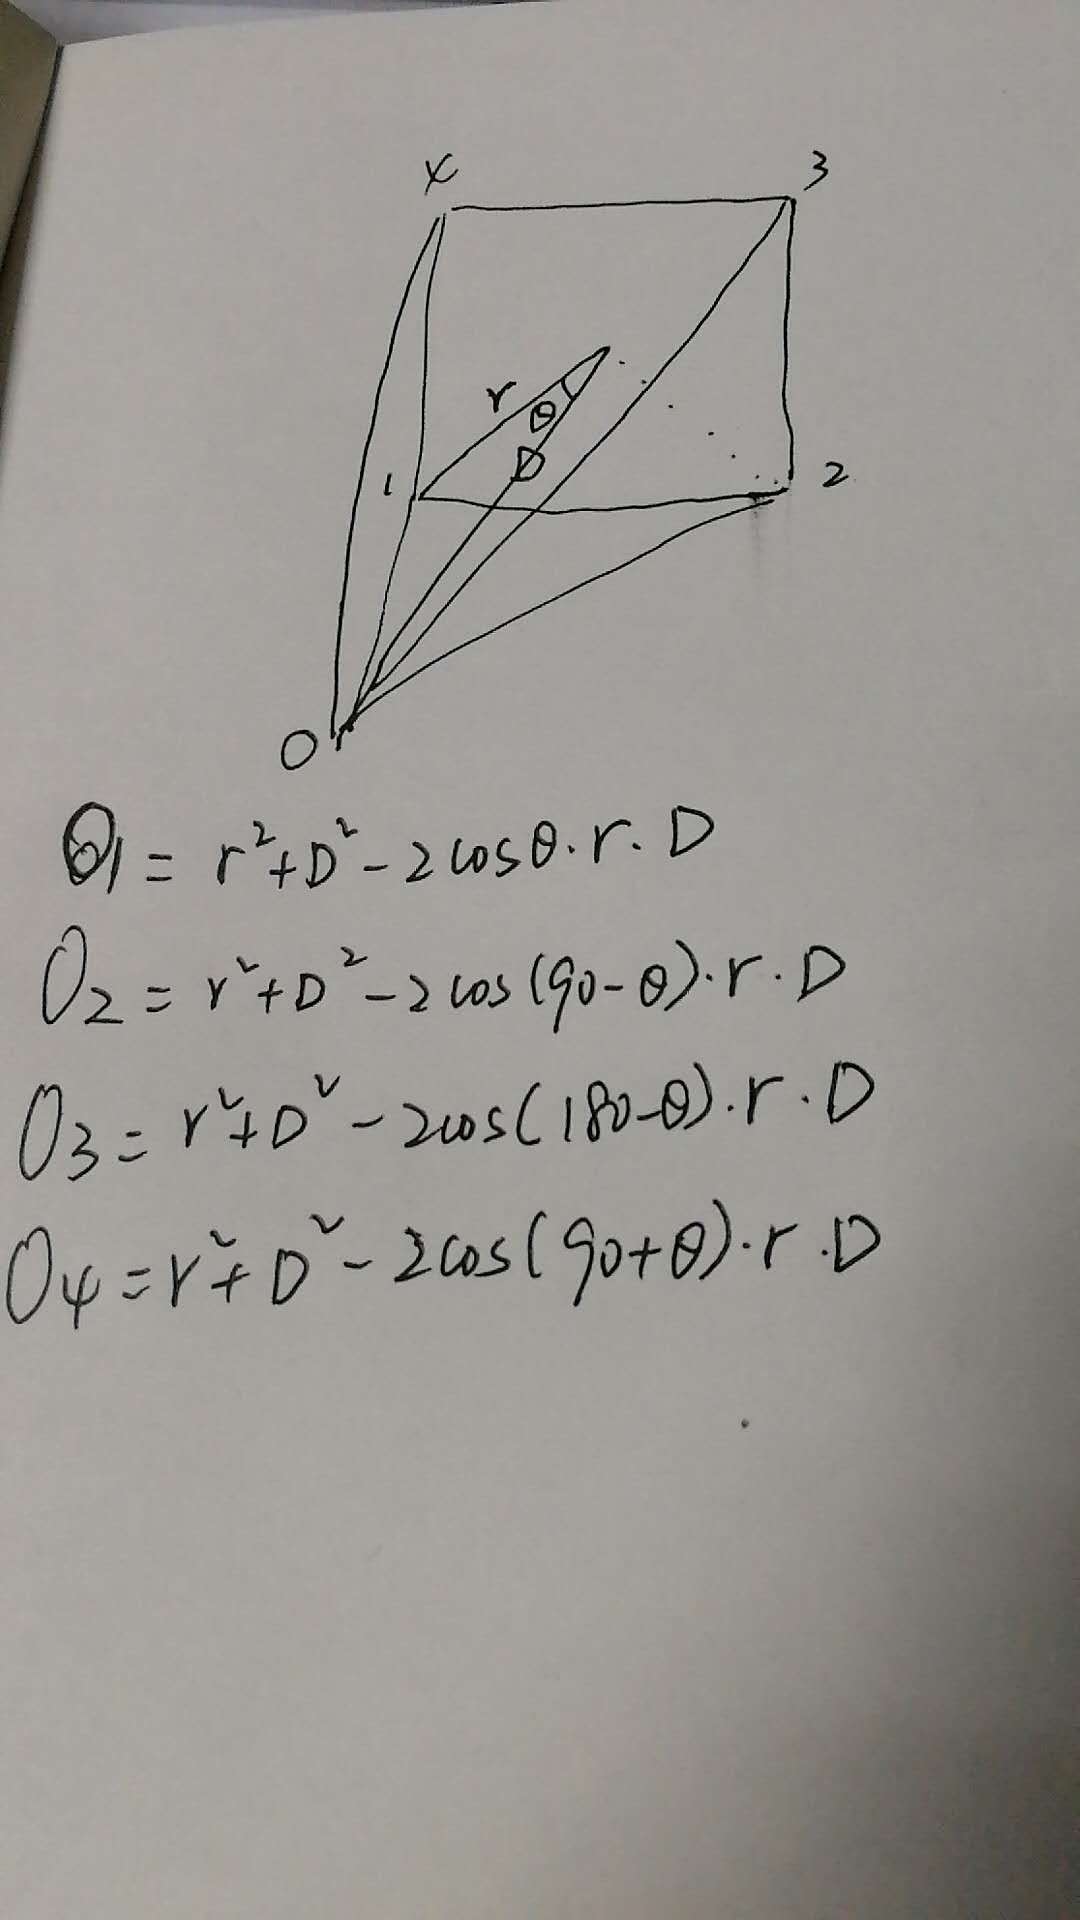 x 3
r
θ
D
1 2
O
O1 = r²+D²-2cosθ·r·D
O2 = r²+D²-2cos(90-θ)·r·D
O3 = r²+D²-2cos(180-θ)·r·D
O4 = r²+D²-2cos(90+θ)·r·D